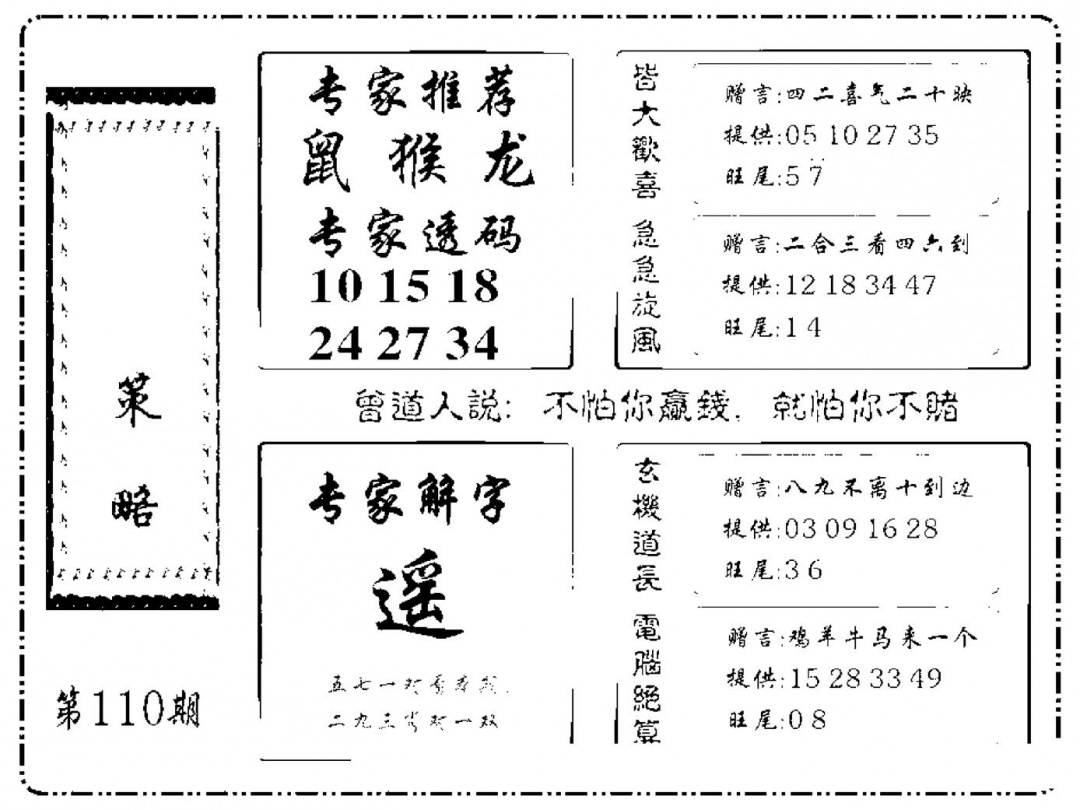 策略
第110期
专家推荐
鼠 猴 龙
专家透码
10 15 18
24 27 34
皆大歡喜
赠言:四二喜气二十映
提供:05 10 27 35
旺尾:5 7
急急旋風
赠言:二合三看四六到
提供:12 18 34 47
旺尾:1 4
曾道人説: 不怕你赢錢, 就怕你不賭
专家解字
遥
五七一对看
二九三肖对一双
玄機道長
赠言:八九不离十到边
提供:03 09 16 28
旺尾:3 6
電腦絕算
赠言:鸡羊牛马来一个
提供:15 28 33 49
旺尾:0 8